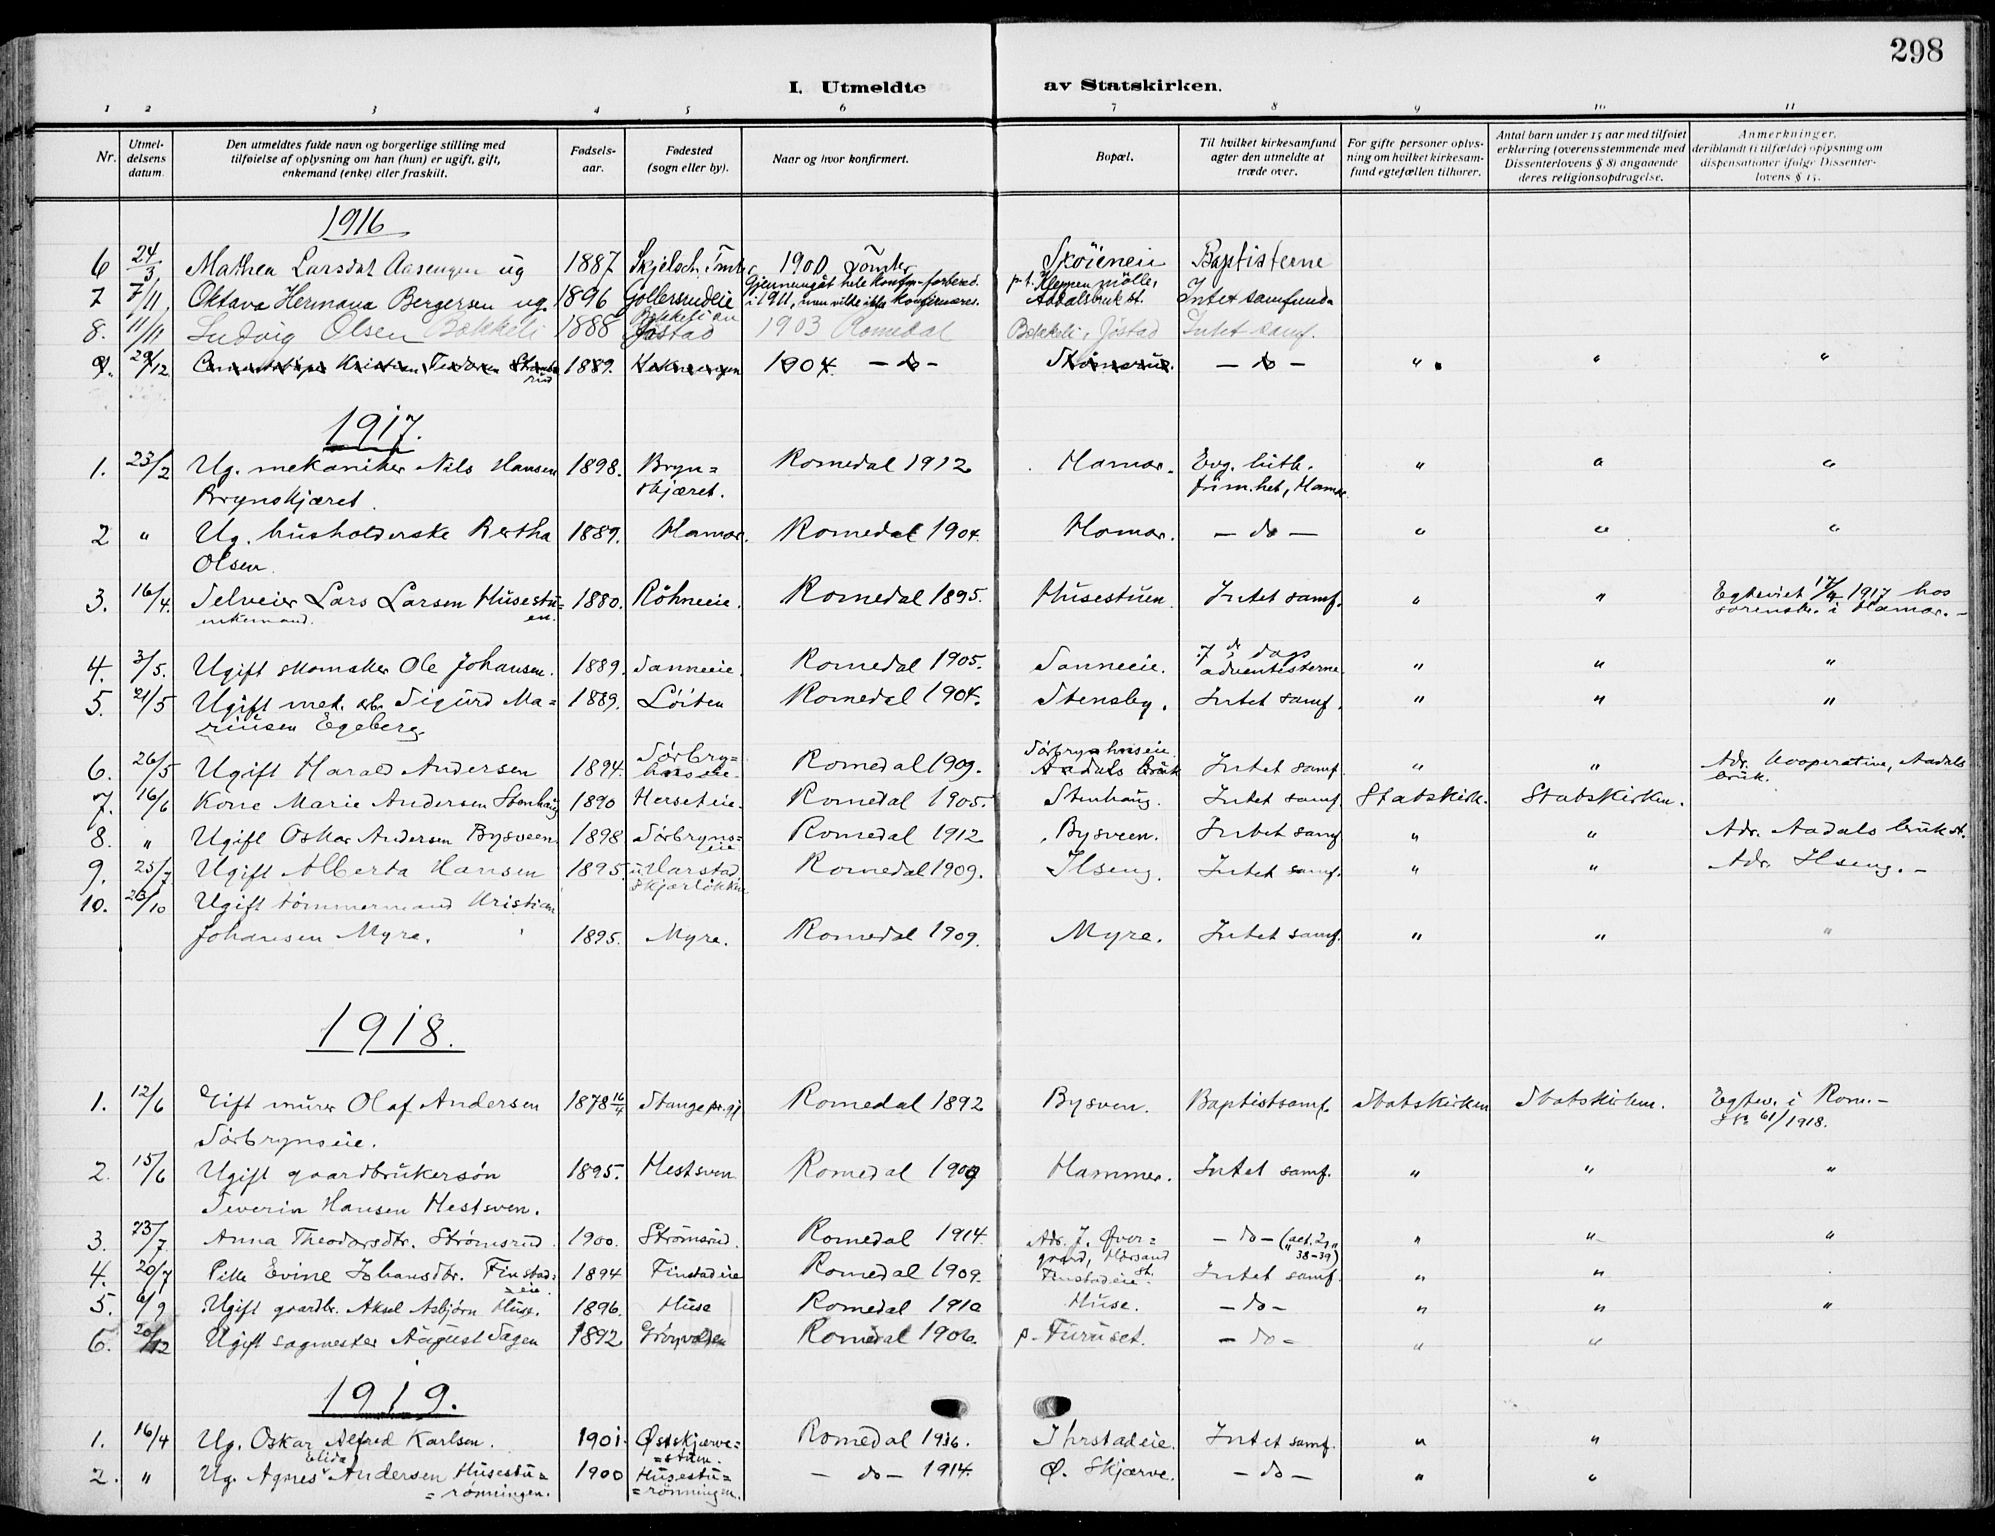 298
I. Utmeldte av Statskirken.
1 2 3 4 5 6 7 8 9 10 11
Nr. | Utmel-delsens datum. | Den utmeldtes fulde navn og borgerlige stilling med tilføielse af oplysning om han (hun) er ugift, gift, enkemand (enke) eller fraskilt. | Fødsels-aar. | Fødested (sogn eller by). | Naar og hvor konfirmert. | Bopæl. | Til hvilket kirkesamfund agter den utmeldte at træde over. | For gifte personer oplys-ning om hvilket kirkesam-fund egtefællen tilhører. | Antal barn under 15 aar med tilføiet erklæring (overensstemmende med Dissenterlovens § 8) angaaende deres religionsopdragelse. | Anmerkninger, deriblandt (i tilfælde) oplysning om dispensationer ifølge Dissenter-lovens § 15.
1916
6 24/3 Mathea Larsdat Aasengen ug 1887 1900 Tomter Baptisterne
Gjennemgåt hele konfm-forbered. p.t.
7 7/11 Oktava Hermana Bergersen ug. 1896 Gollersrudeie i 1911, men ville ikke konfirmeres. Aadalsbruk st. Intet samfund
8. 11/11 Ludvig Olsen Bækkeli 1888 Jøstad 1903 Romedal Bækkeli, Jøstad Intet samf.
9. 29/12 Kristian 1889. 1904. - do - - do - " " "
1917.
1. 23/2 Ug. mekaniker Nils Hansen 1898. Bryn= Romedal 1912 Hamar. Evg. luth. " " "
Brynskjæret. skjæret. frim.het, Hamar
2 " Ug. husholderske Bertha 1889. Hamar. Romedal 1904. Hamar. - do - " " "
Olsen.
3. 16/4. Selveier Lars Larsen Husestu= 1880. Röhneeie. Romedal 1895. Husestuen Intet samf. " " Egteviet 17/4 1917 hos
enkemand. en. sorenskr. i Hamar. -
4. 3/5. Ugift skomaker Ole Johansen. 1889. Sanneeie. Romedal 1905. Sanneeie. 7de dags adventisterne. " " "
5. 21/5 Ugift mek. arb. Sigurd Ma= 1889. Löiten Romedal 1904. Stensby. Intet samf. " " "
riusen Egeberg
6. 26/5 Ugift Harald Andersen 1894. Sörbry= Romedal 1909. Aadals bruk Intet samf. " " Adr. Kooperative, Aadals
bruk.
7. 16/6 Kone Marie Andersen Stenhaug 1890 Herseteie. Romedal 1905. Stenhaug. Intet samf. Statskirk. Statskirken.
8. " Ugift Oskar Andersen Bysveen. 1898 Sörbryns= Romedal 1912 Bysveen. Intet samf. " " Adr. Aadals bruk st.
eie
9. 25/7 Ugift Alberta Hansen 1895. u/Harstad Romedal 1909. Ilseng. Intet samf. " " Adr. Ilseng. -
Skjærlökken
10. 23/10 Ugift tömmermand Kristian
Johansen Myre. 1895. Myre. Romedal 1909. Myre. Intet samf. " " "
1918.
1. 12/6 Gift murer Olaf Andersen 1878 16/4 Stange pr.gj. Romedal 1892 Bysven. Baptistsamf. Statskirken Statskirken. Egtev. i Rom. -
Sörbrynseie. № 61/1918.
2. 15/6 Ugift gaardbrukersön 1895. Hestsven Romedal 1909 Hammer. Intet samf. " " "
Severin Hansen Hestsven.
3. 23/7 Anna Theodorsdtr. Strömsrud. 1900. Strömsrud. Romedal 1914. Adr. J. Över= - do - (act. 2, " " "
gaard, Hörsand st. 38-39)
4. 20/7 Pike Evine Johansdtr. Finstad= 1894 Finstadeie Romedal 1909. Finstadeie. Intet samf. " "
eie.
5. 6/9 Ugift gaardbr. Aksel Asbjörn Huse. 1896. Huse Romedal 1910 Huse. - do - " " "
6. 20/12 Ugift sagmester August Sagen 1892 Romedal 1906. Furuset. - do - " "
1919.
1. 16/4 Ug. Oskar Alfred Karlsen. 1901. Østskjærve= Romedal 1916. Ihrstadeie. Intet samf. " "
Elida =stuen.
2. " Ug. Agnes Andersen Husestu= 1900 Husestu= - do - 1914. Ø. Skjærve. - do - " "
=rönningen. =rönningen.